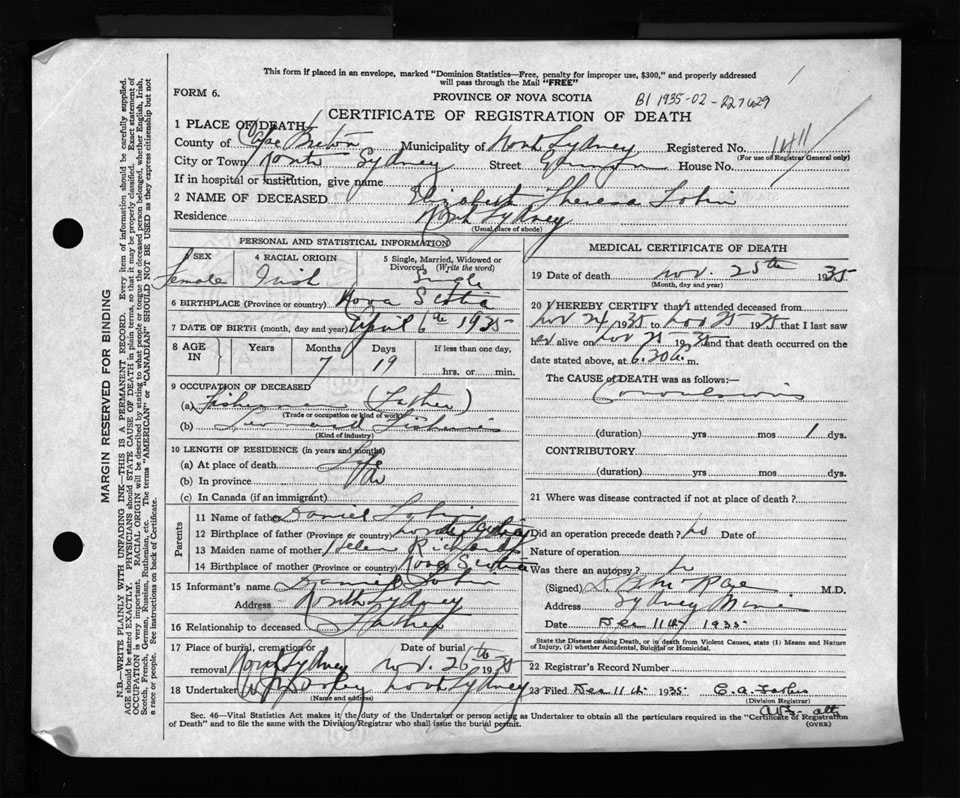 This form if placed in an envelope, marked "Dominion Statistics—Free, penalty for improper use, $300," and properly addressed
will pass through the Mail "FREE"
FORM 6.
PROVINCE OF NOVA SCOTIA
B1 1935-02-227629
CERTIFICATE OF REGISTRATION OF DEATH
1 PLACE OF DEATH
County of Cape Breton Municipality of North Sydney Registered No. 1411
(For use of Registrar General only)
City or Town North Sydney Street House No.
If in hospital or institution, give name
2 NAME OF DECEASED Elizabeth Theresa Tobin
Residence North Sydney
(Usual place of abode)
PERSONAL AND STATISTICAL INFORMATION
SEX Female
4 RACIAL ORIGIN Irish
5 Single, Married, Widowed or Divorced (Write the word) Single
6 BIRTHPLACE (Province or country) Nova Scotia
7 DATE OF BIRTH (month, day and year) April 6th 1935
8 AGE IN Years Months 7 Days 19 If less than one day, hrs. or min.
9 OCCUPATION OF DECEASED
(a) Fisherman (Father)
(Trade or occupation or kind of work)
(b) Leonard Fisheries
(Kind of industry)
10 LENGTH OF RESIDENCE (in years and months)
(a) At place of death Life
(b) In province
(c) In Canada (if an immigrant)
Parents
11 Name of father Daniel Tobin
12 Birthplace of father (Province or country) Nova Scotia
13 Maiden name of mother Helen Richards
14 Birthplace of mother (Province or country) Nova Scotia
15 Informant's name Daniel Tobin
Address North Sydney
16 Relationship to deceased Father
17 Place of burial, cremation or removal North Sydney Date of burial Nov. 26th 1935
18 Undertaker North Sydney
(Name and address)
MEDICAL CERTIFICATE OF DEATH
19 Date of death Nov. 25th 1935
(Month, day and year)
20 I HEREBY CERTIFY that I attended deceased from
Nov 24 1935 to Nov 25 1935 that I last saw
her alive on Nov 25 1935 and that death occurred on the
date stated above, at 6.30 a.m.
The CAUSE of DEATH was as follows:—
Convulsions
(duration) yrs mos 1 dys.
CONTRIBUTORY
(duration) yrs mos dys.
21 Where was disease contracted if not at place of death?
Did an operation precede death? no Date of
Nature of operation
Was there an autopsy? no
(Signed) M.D.
Address Sydney Mines
Date Dec 11th 1935
State the Disease causing Death, or in death from Violent Causes, state (1) Means and Nature
of Injury, (2) whether Accidental, Suicidal or Homicidal.
22 Registrar's Record Number
23 Filed Dec 11th 1935
(Division Registrar)
Sec. 46—Vital Statistics Act makes it the duty of the Undertaker or person acting as Undertaker to obtain all the particulars required in the "Certificate of Registration
of Death" and to file the same with the Division Registrar who shall issue the burial permit.
(OVER)
MARGIN RESERVED FOR BINDING
N.B.—WRITE PLAINLY WITH UNFADING INK—THIS IS A PERMANENT RECORD. Every item of information should be carefully supplied.
AGE should be stated EXACTLY. PHYSICIANS should STATE CAUSE OF DEATH in plain terms, so that it may be properly classified. Exact statement of
OCCUPATION is very important. RACIAL ORIGIN will be described by stating to what people or tongue the deceased person belonged, whether English, Irish,
Scotch, French, German, Russian, Ruthenian, etc. The terms "AMERICAN" or "CANADIAN" SHOULD NOT BE USED as they express citizenship but not
a race or people. See instructions on back of Certificate.